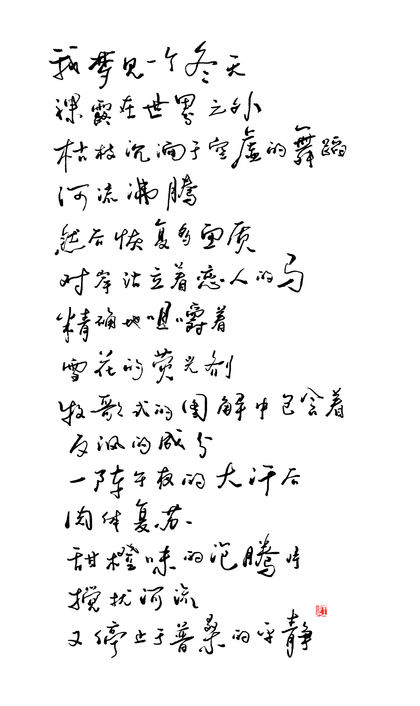 我梦见一个冬天
裸露在世界之外
枯枝沉湎于空虚的舞蹈
河流沸腾
然后恢复多血质
对岸站立着恋人的马
精确地咀嚼着
雪花的荧光剂
牧歌式的图解中包含着
反讽的成分
一阵午夜的大汗后
肉体复苏
甜橙味的泡腾片
搅扰河流
又停止于普桑的平静